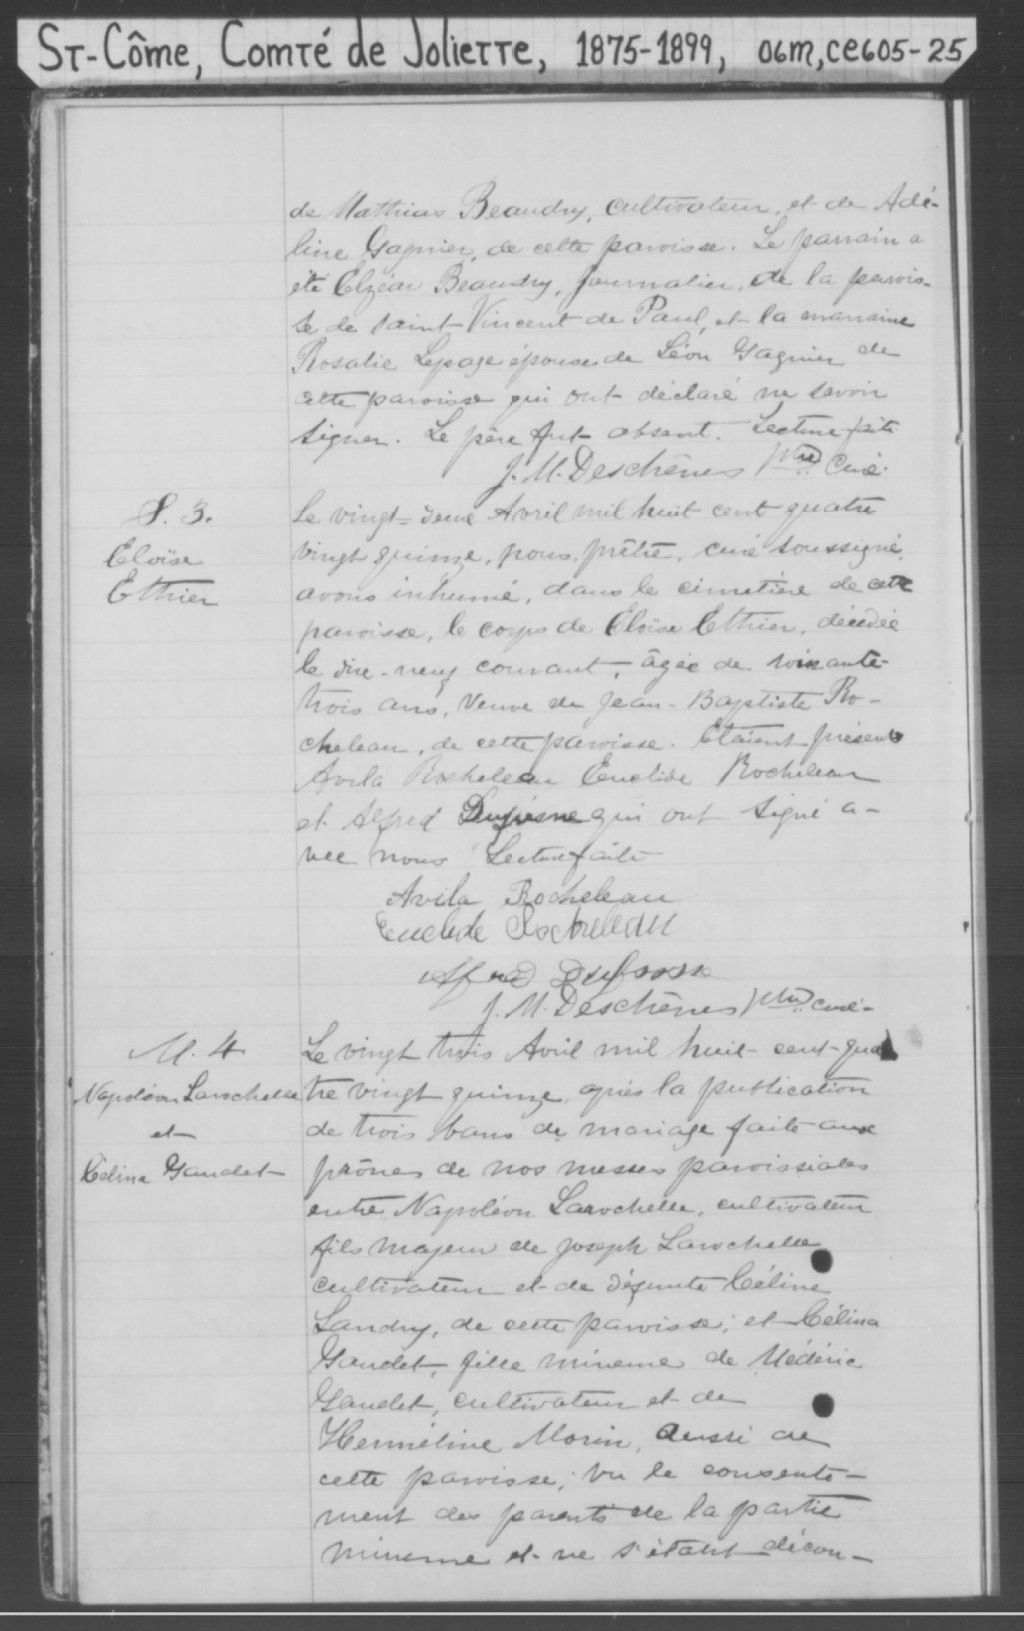 St-Côme, Comté de Joliette, 1875-1899, 06M,CE605-25
de Mathias Beaudry, cultivateur, et de Adé-
line Gagnier, de cette paroisse. Le parrain a
été Elzéar Beaudry, journalier, de la parois-
se de Saint-Vincent de Paul, et la marraine
Rosalie Lepage épouse de Léon Gagnier de
cette paroisse qui ont déclaré ne savoir
signer. Le père fut absent. Lecture faite
J. M. Deschênes Ptre Curé.
S. 3.
Eloïse
Ethier
Le vingt-deux Avril mil huit cent quatre
vingt quinze, nous, prêtre, curé soussigné,
avons inhumé, dans le cimetière de cette
paroisse, le corps de Eloïse Ethier, décédée
le dix-neuf courant, âgée de soixante-
trois ans, veuve de Jean-Baptiste Ro-
cheleau, de cette paroisse. Etaient présents
Avila Rocheleau Euclide Rocheleau
et Alfred qui ont signé a-
vec nous Lecture faite
Avila Rocheleau
Euclide Rocheleau
Alfred
J. M. Deschênes Ptre curé-
M. 4
Napoléon Larochelle
et
Célina Gaudet
Le vingt trois Avril mil huit-cent-qua
tre vingt quinze, après la publication
de trois bans de mariage faite aux
prônes de nos messes paroissiales
entre Napoléon Larochelle, cultivateur
fils majeur de Joseph Larochelle
cultivateur et de défunte Céline
Landry, de cette paroisse; et Célina
Gaudet, fille mineure de Médéric
Gaudet, cultivateur et de
Herméline Morin, aussi de
cette paroisse; vu le consente-
ment des parents de la partie
mineure et ne s'étant décou-